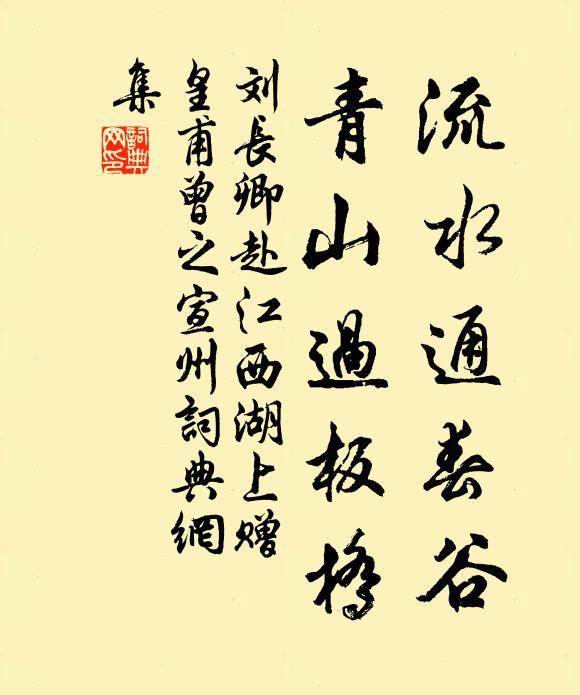 流水通春谷
青山過板橋
刘長卿赴江西湖上贈
皇甫曾之宣州詞典網
集
詞典
网印